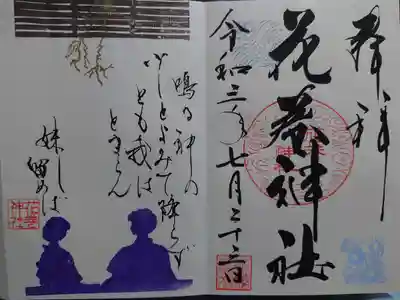 奉拝
花巻神社
令和三年七月二十三日
鳴る神の
少しとよみて降らず
とも我は
とまらん
妹し
留めば